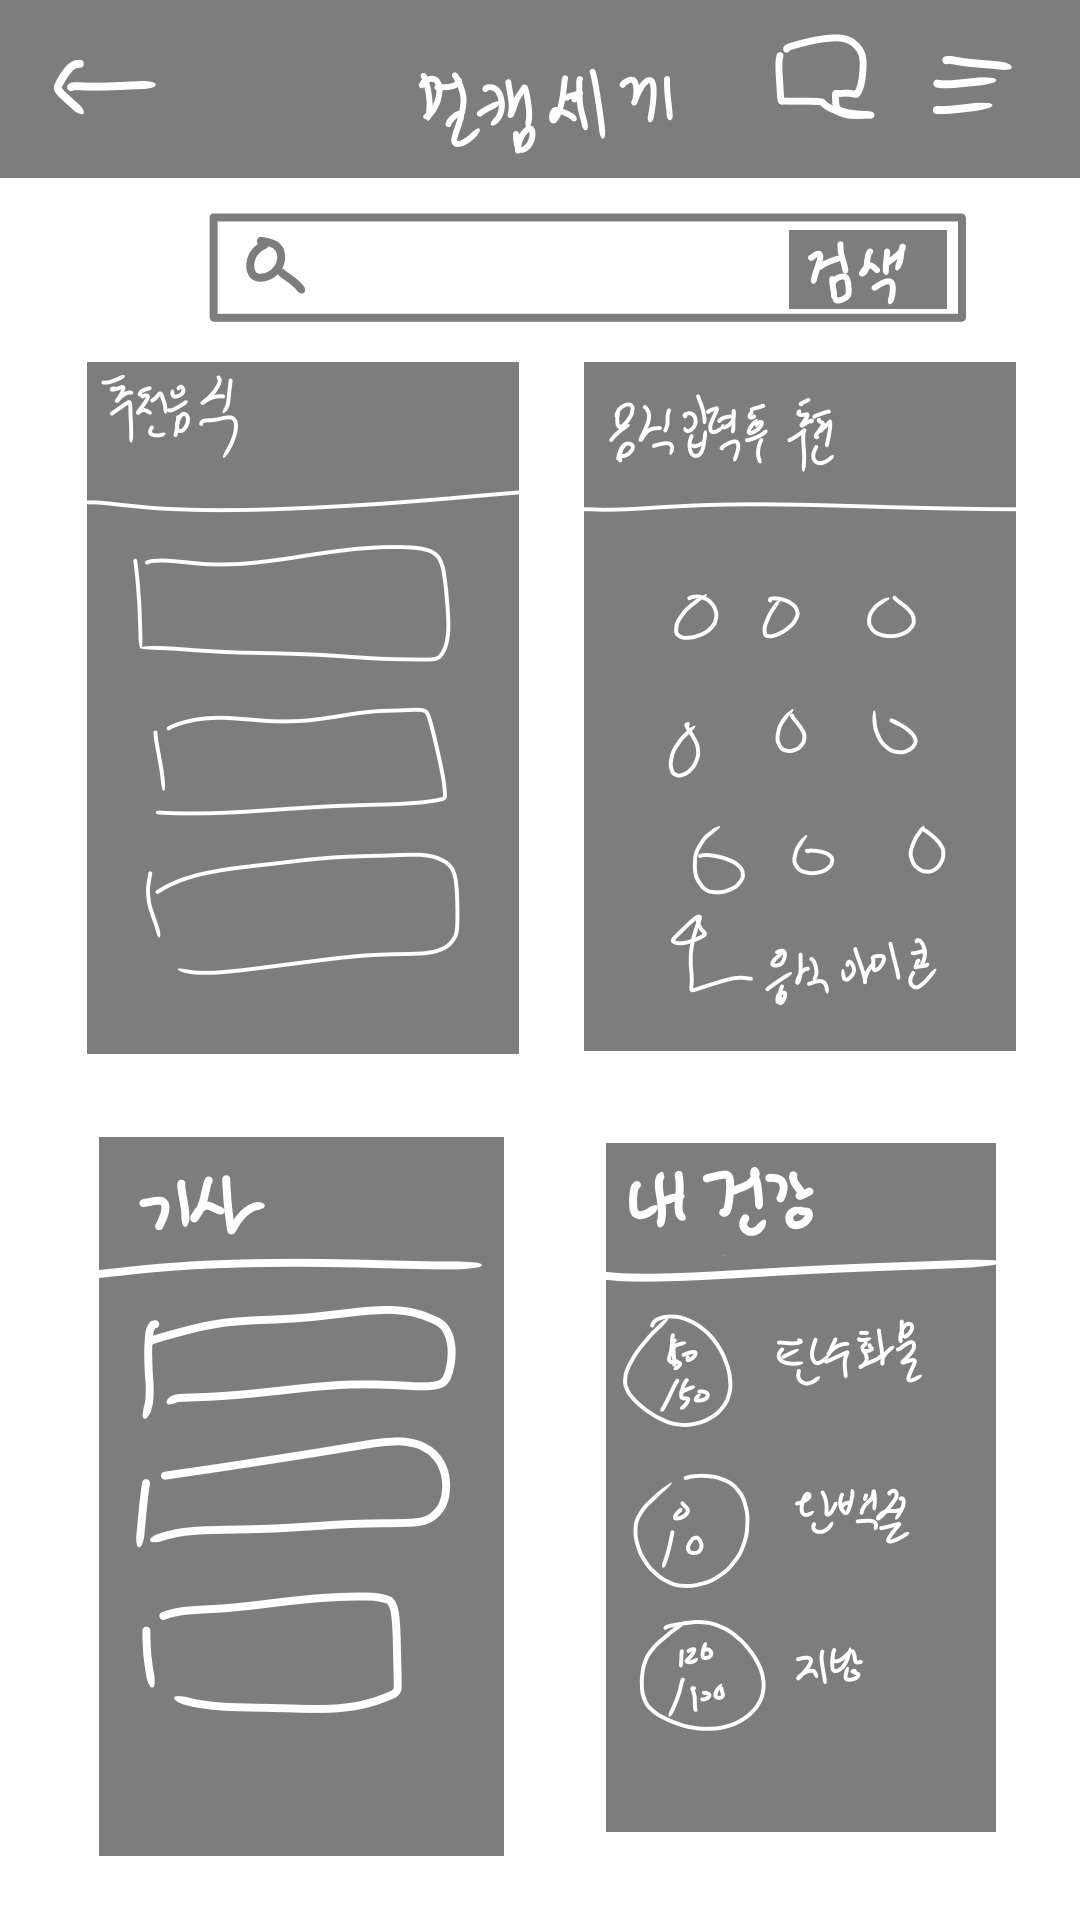 멀캠세끼
검색
추천음식
음식 입력 후 추천
음식 아이콘
기사
내 건강
50
/150
탄수화물
0
/0
단백질
120
/100
지방